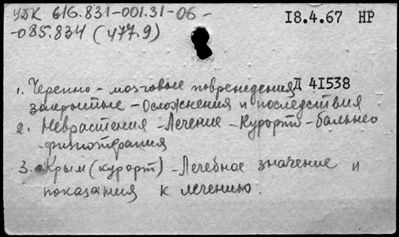 УДК 616.831-001.31-06-
-085.834 (477.9)
18.4.67 НР
Д 41538
1. Черепно-мозговые повреждения
закрытые - Осложнения и последствия
2. Неврастения - Лечение - Курорто-бальнео
физиотерапия
3. Крым (курорт) - Лечебное значение и
показания к лечению.